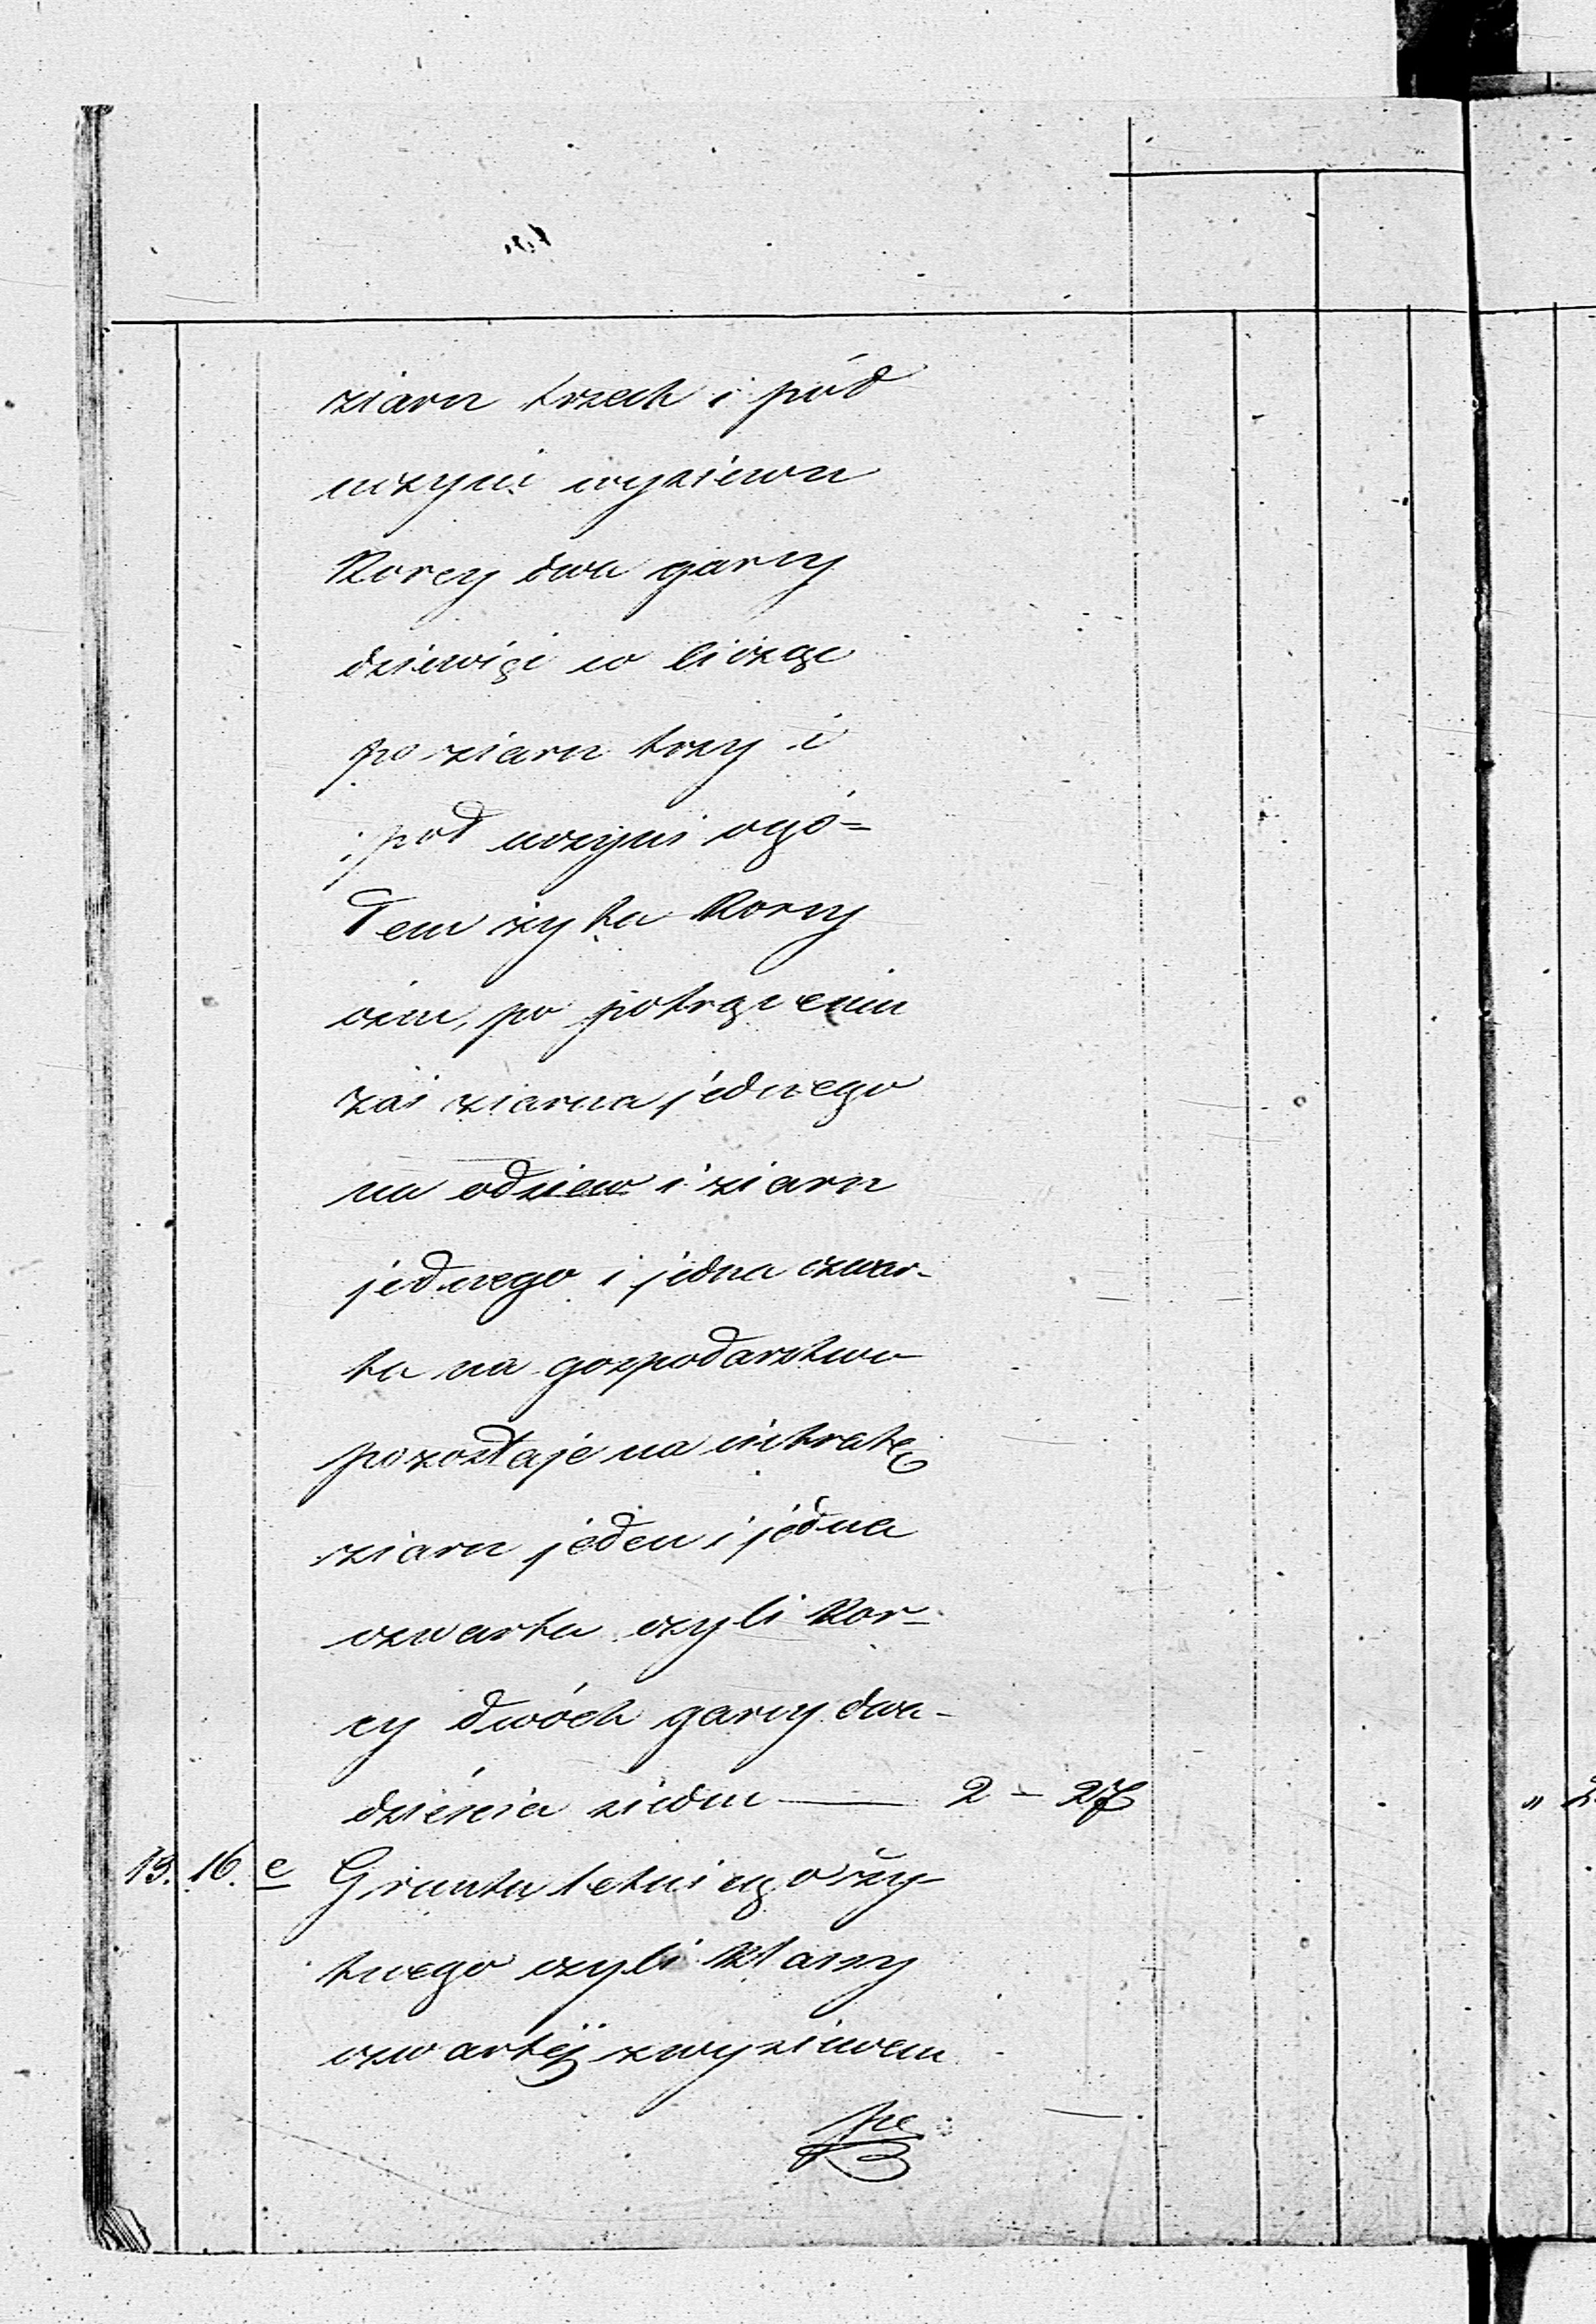 ziarn trzech i pół
uczyni wysiewu
Korcy dwa garcy
dziewięć w licząc
po ziarn trzy i
i poł uczyni ogó=
łem żyta Korcy
ośm, po potrąceniu
zaś ziarna jednego
na odsiew i ziarn
jednego i jedna czwar-
ta na gospodarstwo
pozostaje na intratę
ziarn jeden i jedna
czwarta czyli Kor-
cy dwóch garcy dwa-
dzieścia siedm — 2 – 27
13. 16. e Gruntu letniego Ży-
tnego czyli Klassy
czwartéj z wysiewem